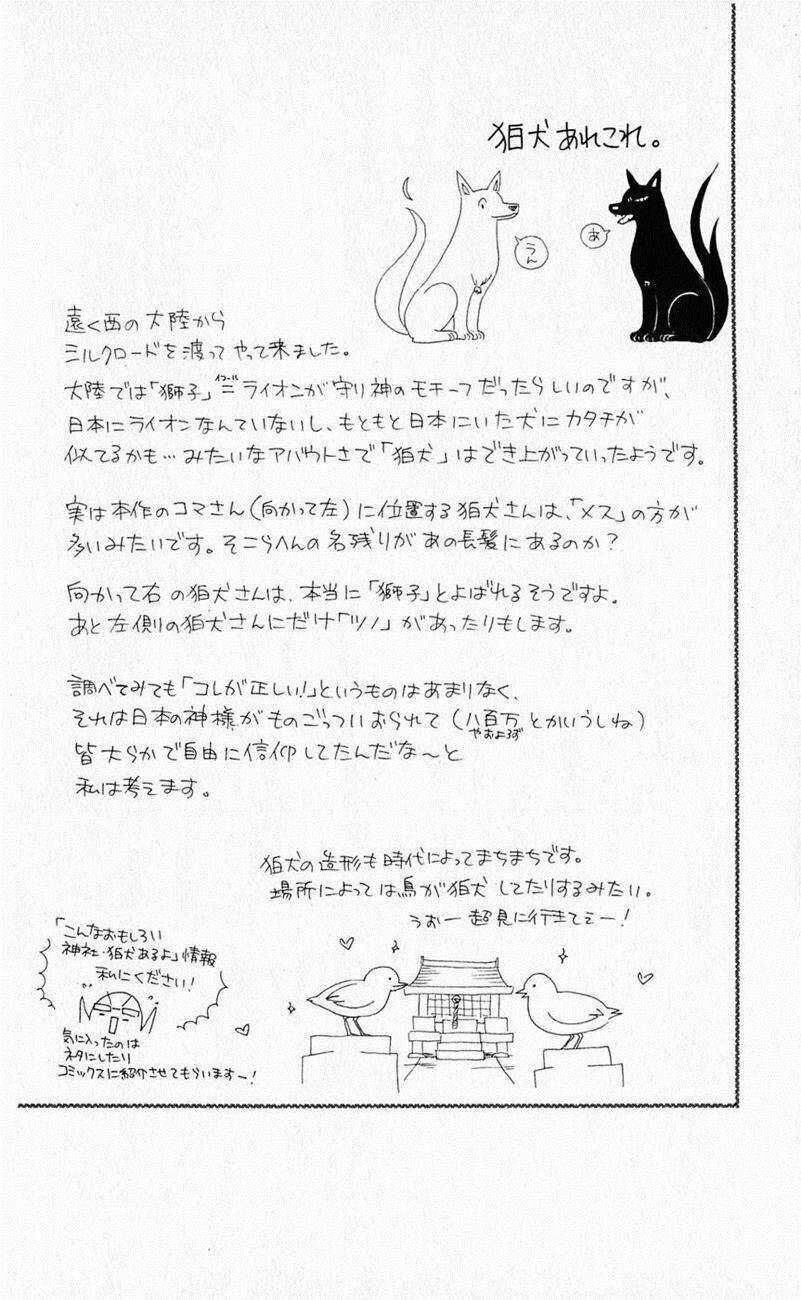 狛犬あれこれ。
うん
あ
遠く西の大陸から
シルクロードを渡ってやって来ました。
大陸では「獅子」イコール=ライオンが守り神のモチーフだったらしいのですが、
日本にライオンなんていないし、もともと日本にいた犬にカタチが
似てるかも…みたいなアバウトさで「狛犬」はでき上がっていったようです。
実は本作のコマさん(向かって左)に位置する狛犬さんは、「メス」の方が
多いみたいです。そこらへんの名残りがあの長髪にあるのか?
向かって右の狛犬さんは、本当に「獅子」とよばれるそうですよ。
あと左側の狛犬さんにだけ「ツノ」があったりもします。
調べてみても「コレが正しい!」というものはあまりなく、
それは日本の神様がものごっついおられて(八百万とかいうしね)
やおよろず
皆大らかで自由に信仰してたんだな〜と
私は考えます。
狛犬の造形も時代によってまちまちです。
場所によっては鳥が狛犬してたりするみたい。
うおー超見に行きてぇー!
「こんなおもしろい
神社・狛犬あるよ」情報
私にください!
気に入ったのは
ネタにしたり
コミックスに紹介させてもらいますー!